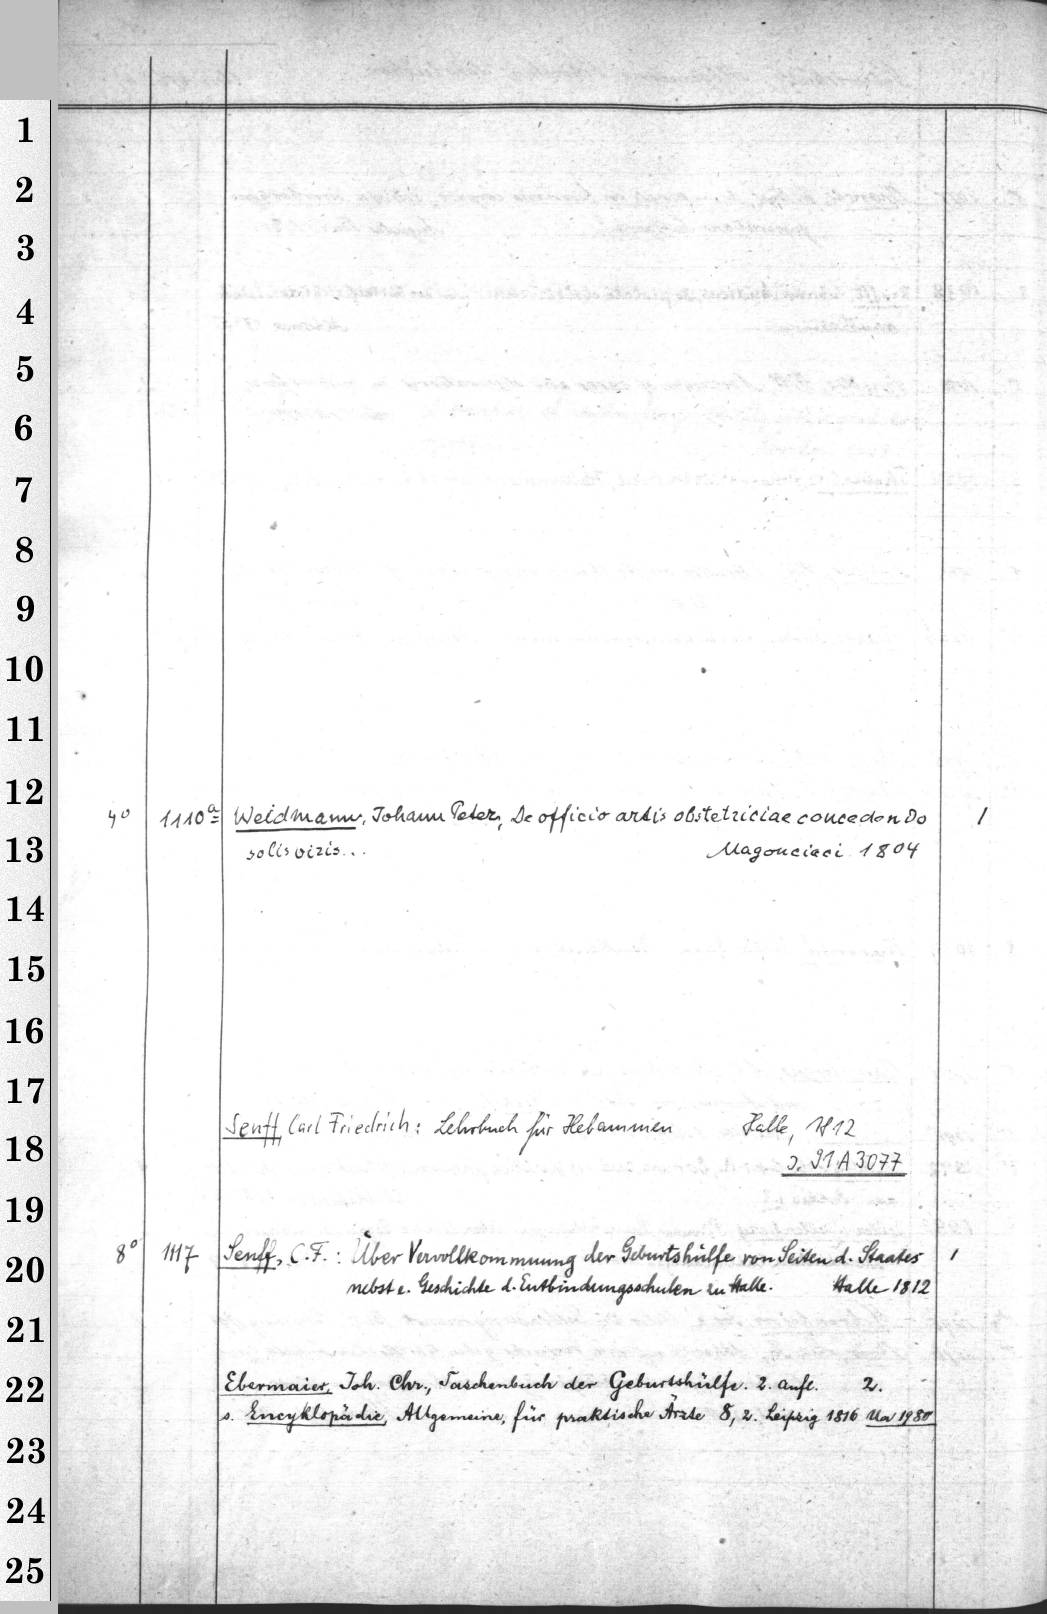 1
2
3
4
5
6
7
8
9
10
11
12
4° 1110ª Weidmann, Johann Peter, De officio artis obstetriciae concedendo 1
13
solis viris... Magonciaci 1804
14
15
16
17
Senff, Carl Friedrich: Lehrbuch für Hebammen Halle, 1812
18
s. 91 A 3077
19
8° 1117 Senff, C.F.: Über Vervollkommnung der Geburtshülfe von Seiten d. Staates 1
20
nebst e. Geschichte d. Entbindungsschulen zu Halle. Halle 1812
21
Ebermaier, Joh. Chr., Taschenbuch der Geburtshülfe. 2. Aufl. 2.
22
s. Encyklopädie, Allgemeine, für praktische Ärzte 8, 2. Leipzig 1816 Ua 1980
23
24
25